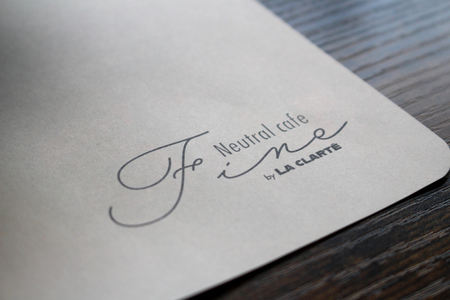 Neutral cafe
Fine
by LA CLARTÉ